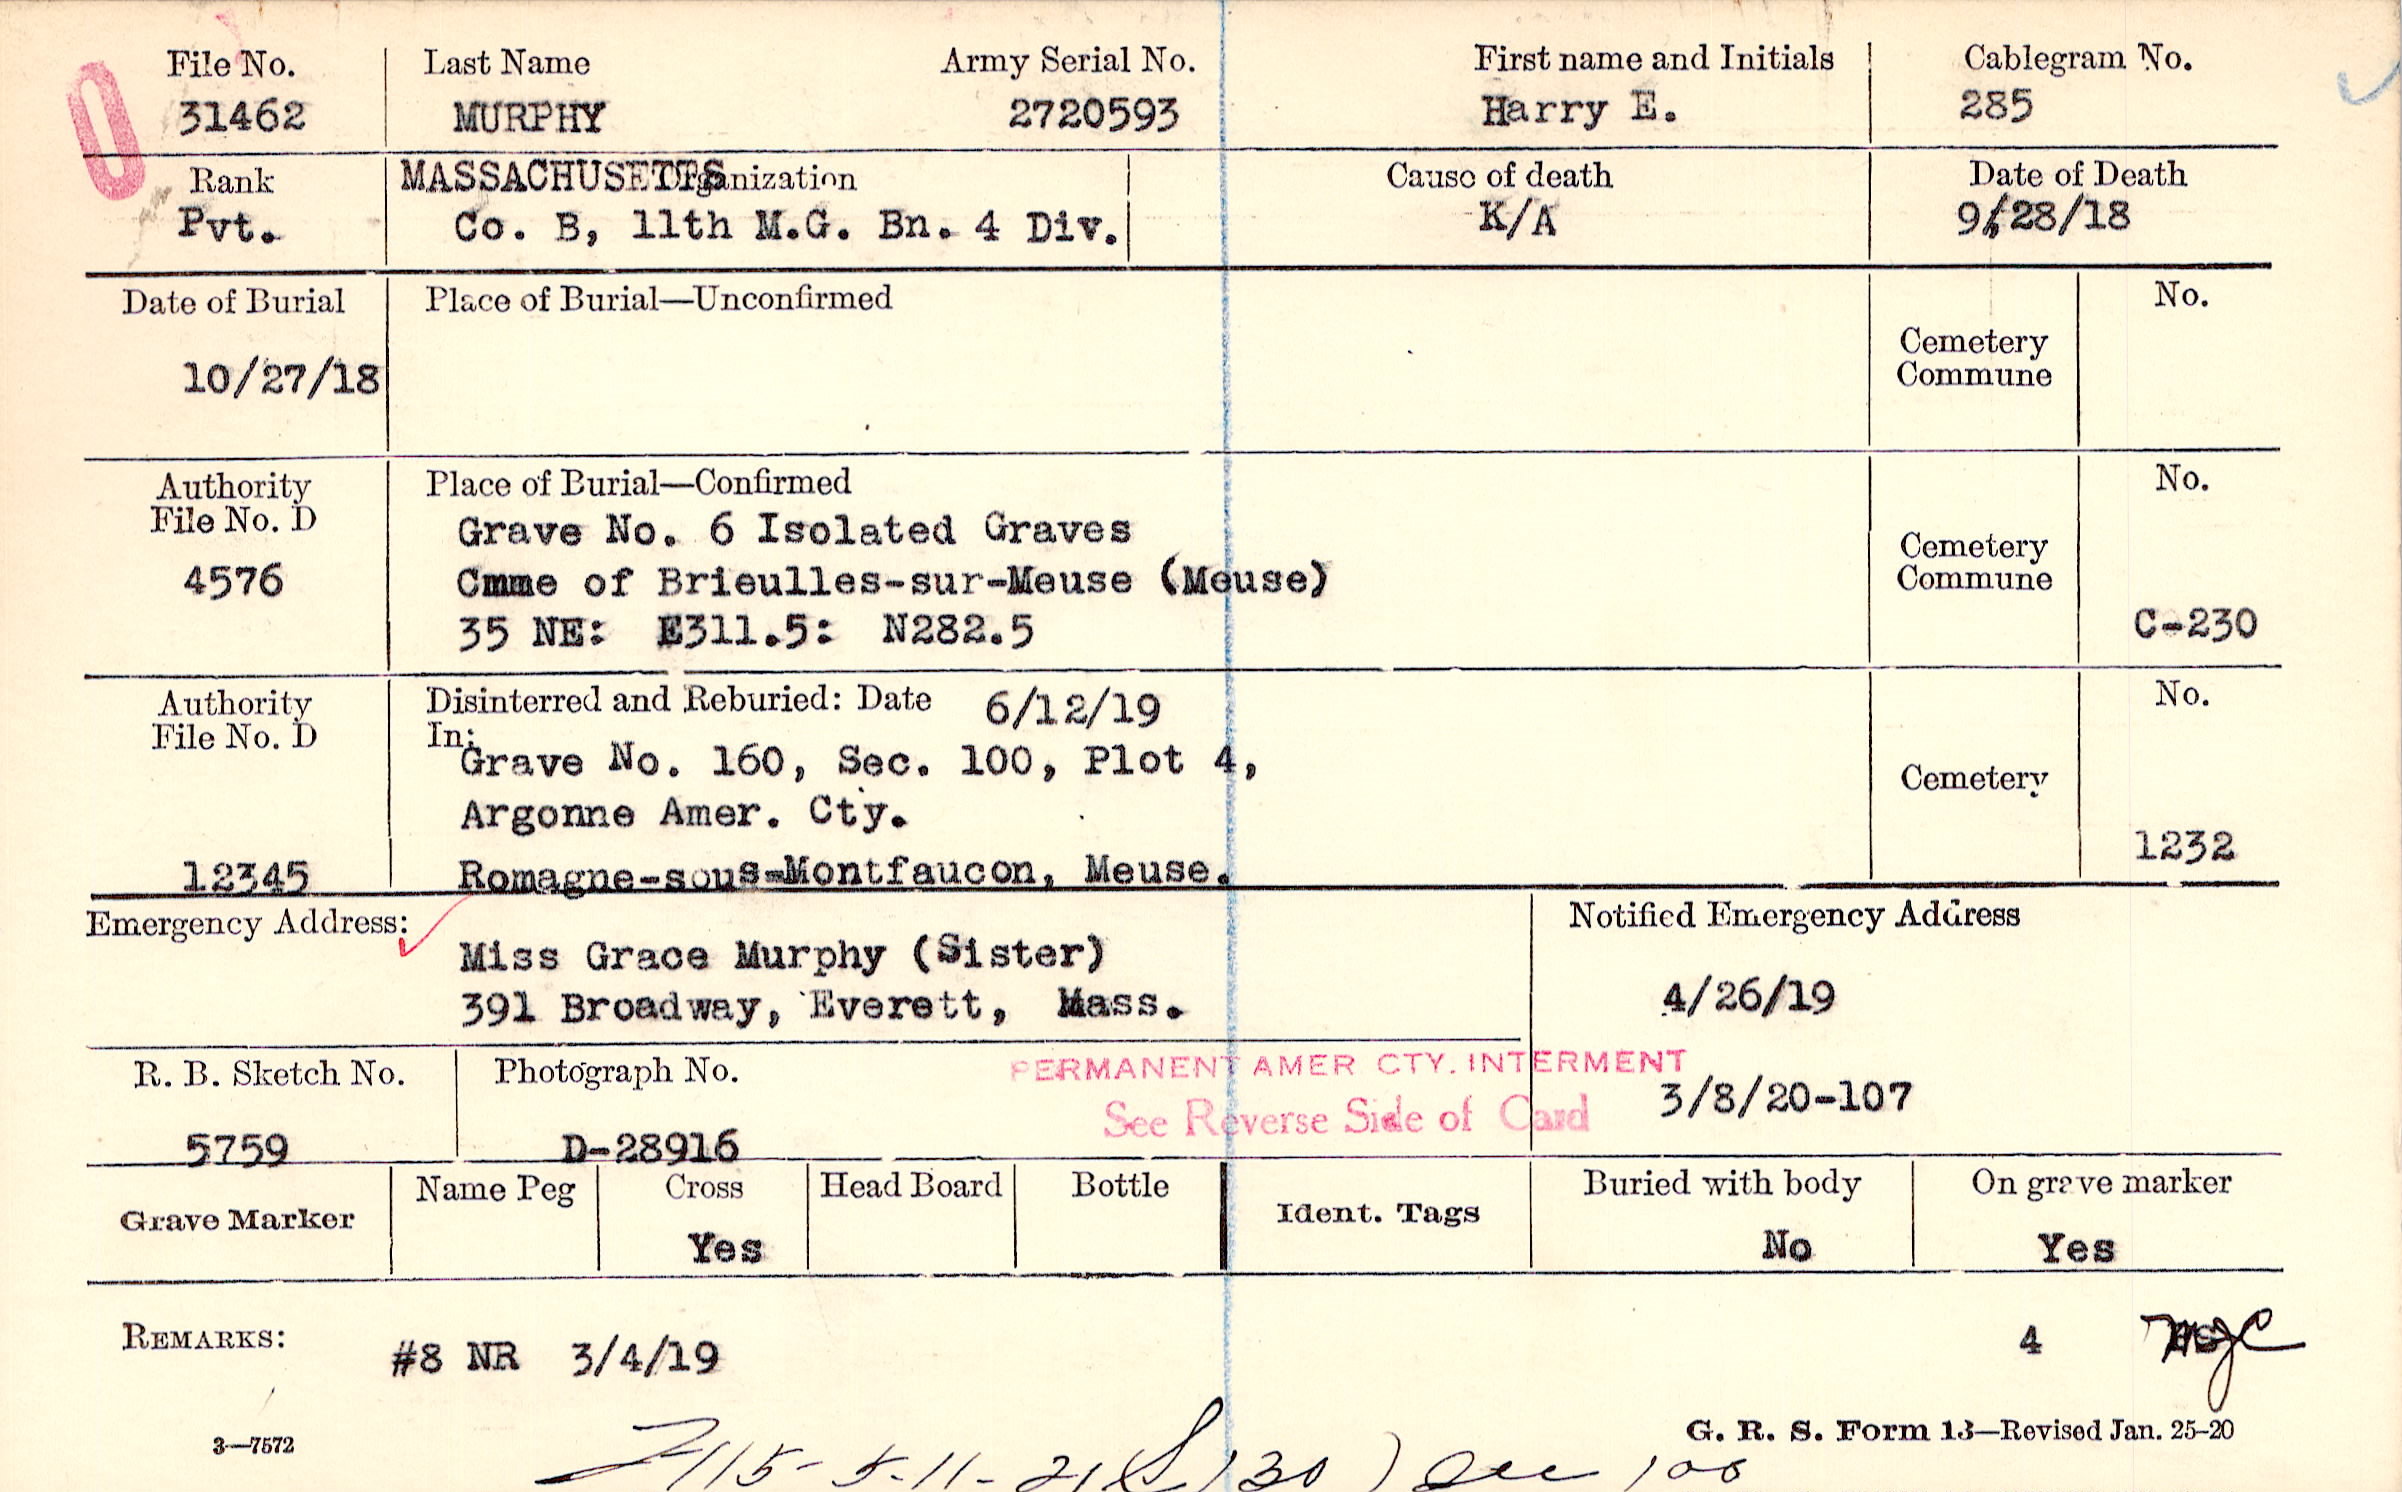 File No. Last Name Army Serial No. First name and Initials Cablegram No.
31462 MURPHY 2720593 Harry E. 285
Rank MASSACHUSETTS Organization Cause of death Date of Death
Pvt. Co. B, 11th M.G. Bn. 4 Div. K/A 9/28/18
Date of Burial Place of Burial—Unconfirmed No.
10/27/18 Cemetery
Commune
Authority Place of Burial—Confirmed No.
File No. D Grave No. 6 Isolated Graves Cemetery
4576 Cmme of Brieulles-sur-Meuse (Meuse) Commune
35 NE: E311.5: N282.5 C-230
Authority Disinterred and Reburied: Date 6/12/19 No.
File No. D In:
Grave No. 160, Sec. 100, Plot 4, Cemetery
Argonne Amer. Cty.
12345 Romagne-sous-Montfaucon, Meuse. 1232
Emergency Address: Notified Emergency Address
Miss Grace Murphy (Sister)
391 Broadway, Everett, Mass. 4/26/19
R. B. Sketch No. Photograph No. PERMANENT AMER CTY. INTERMENT
See Reverse Side of Card 3/8/20-107
5759 D-28916
Grave Marker Name Peg Cross Head Board Bottle Ident. Tags Buried with body On grave marker
Yes No Yes
REMARKS: #8 NR 3/4/19 4
3—7572 G. R. S. Form 13—Revised Jan. 25-20
5-11-21